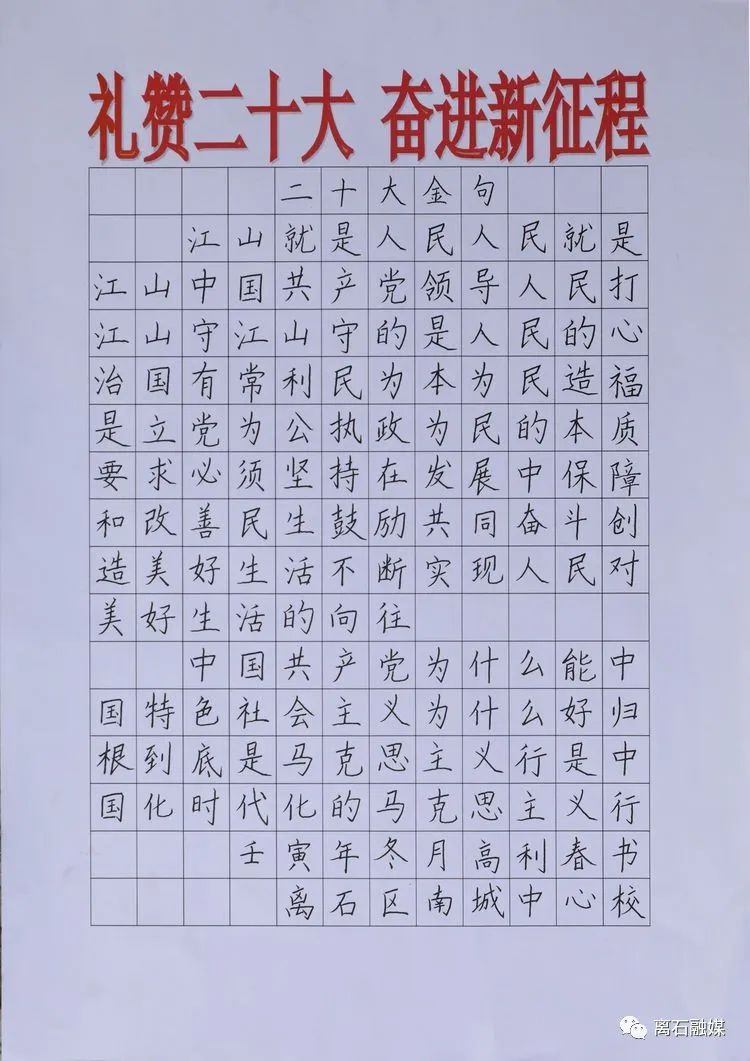 礼赞二十大 奋进新征程
二十大金句
江山就是人民人民就是
江山中国共产党领导人民打
江山守江山守的是人民的心
治国有常利民为本为民造福
是立党为公执政为民的本质
要求必须坚持在发展中保障
和改善民生鼓励共同奋斗创
造美好生活不断实现人民对
美好生活的向往
中国共产党为什么能中
国特色社会主义为什么好归
根到底是马克思主义行是中
国化时代化的马克思主义行
壬寅年冬月高利春书
离石区南城中心校
离石融媒